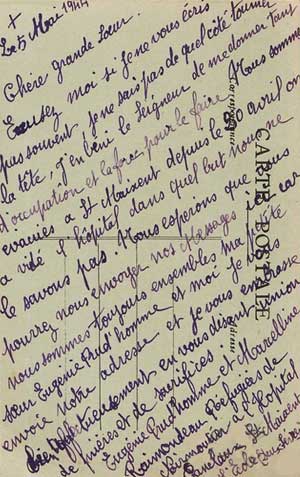 +
Le 5 Mai 1944
Chère grande sœur.
Excusez moi si je ne vous écris
pas souvent, je ne sais pas de quel côté tourner
la tête, j'en béni le Seigneur de me donner tant
d'occupation et la force pour le faire. Nous sommes
évacuées a St Maixent depuis le 30 avril on
a vidé l'hôpital dans quel but nous ne
le savons pas. Nous espérions que vous
pourrez nous envoyer nos Messages car
nous sommes toujours ensembles ma petite
sœur Eugénie Prud'homme et moi je vous
envoie notre adresse et je vous embrasse
bien affectueusement, en vous disant, union
de prières et de sacrifices
Eugénie Prud'homme et Marcelline
Raimondeau Réfugiées de
l'Hôpital
St Maixent
CARTE POSTALE
Correspondance
Adresse